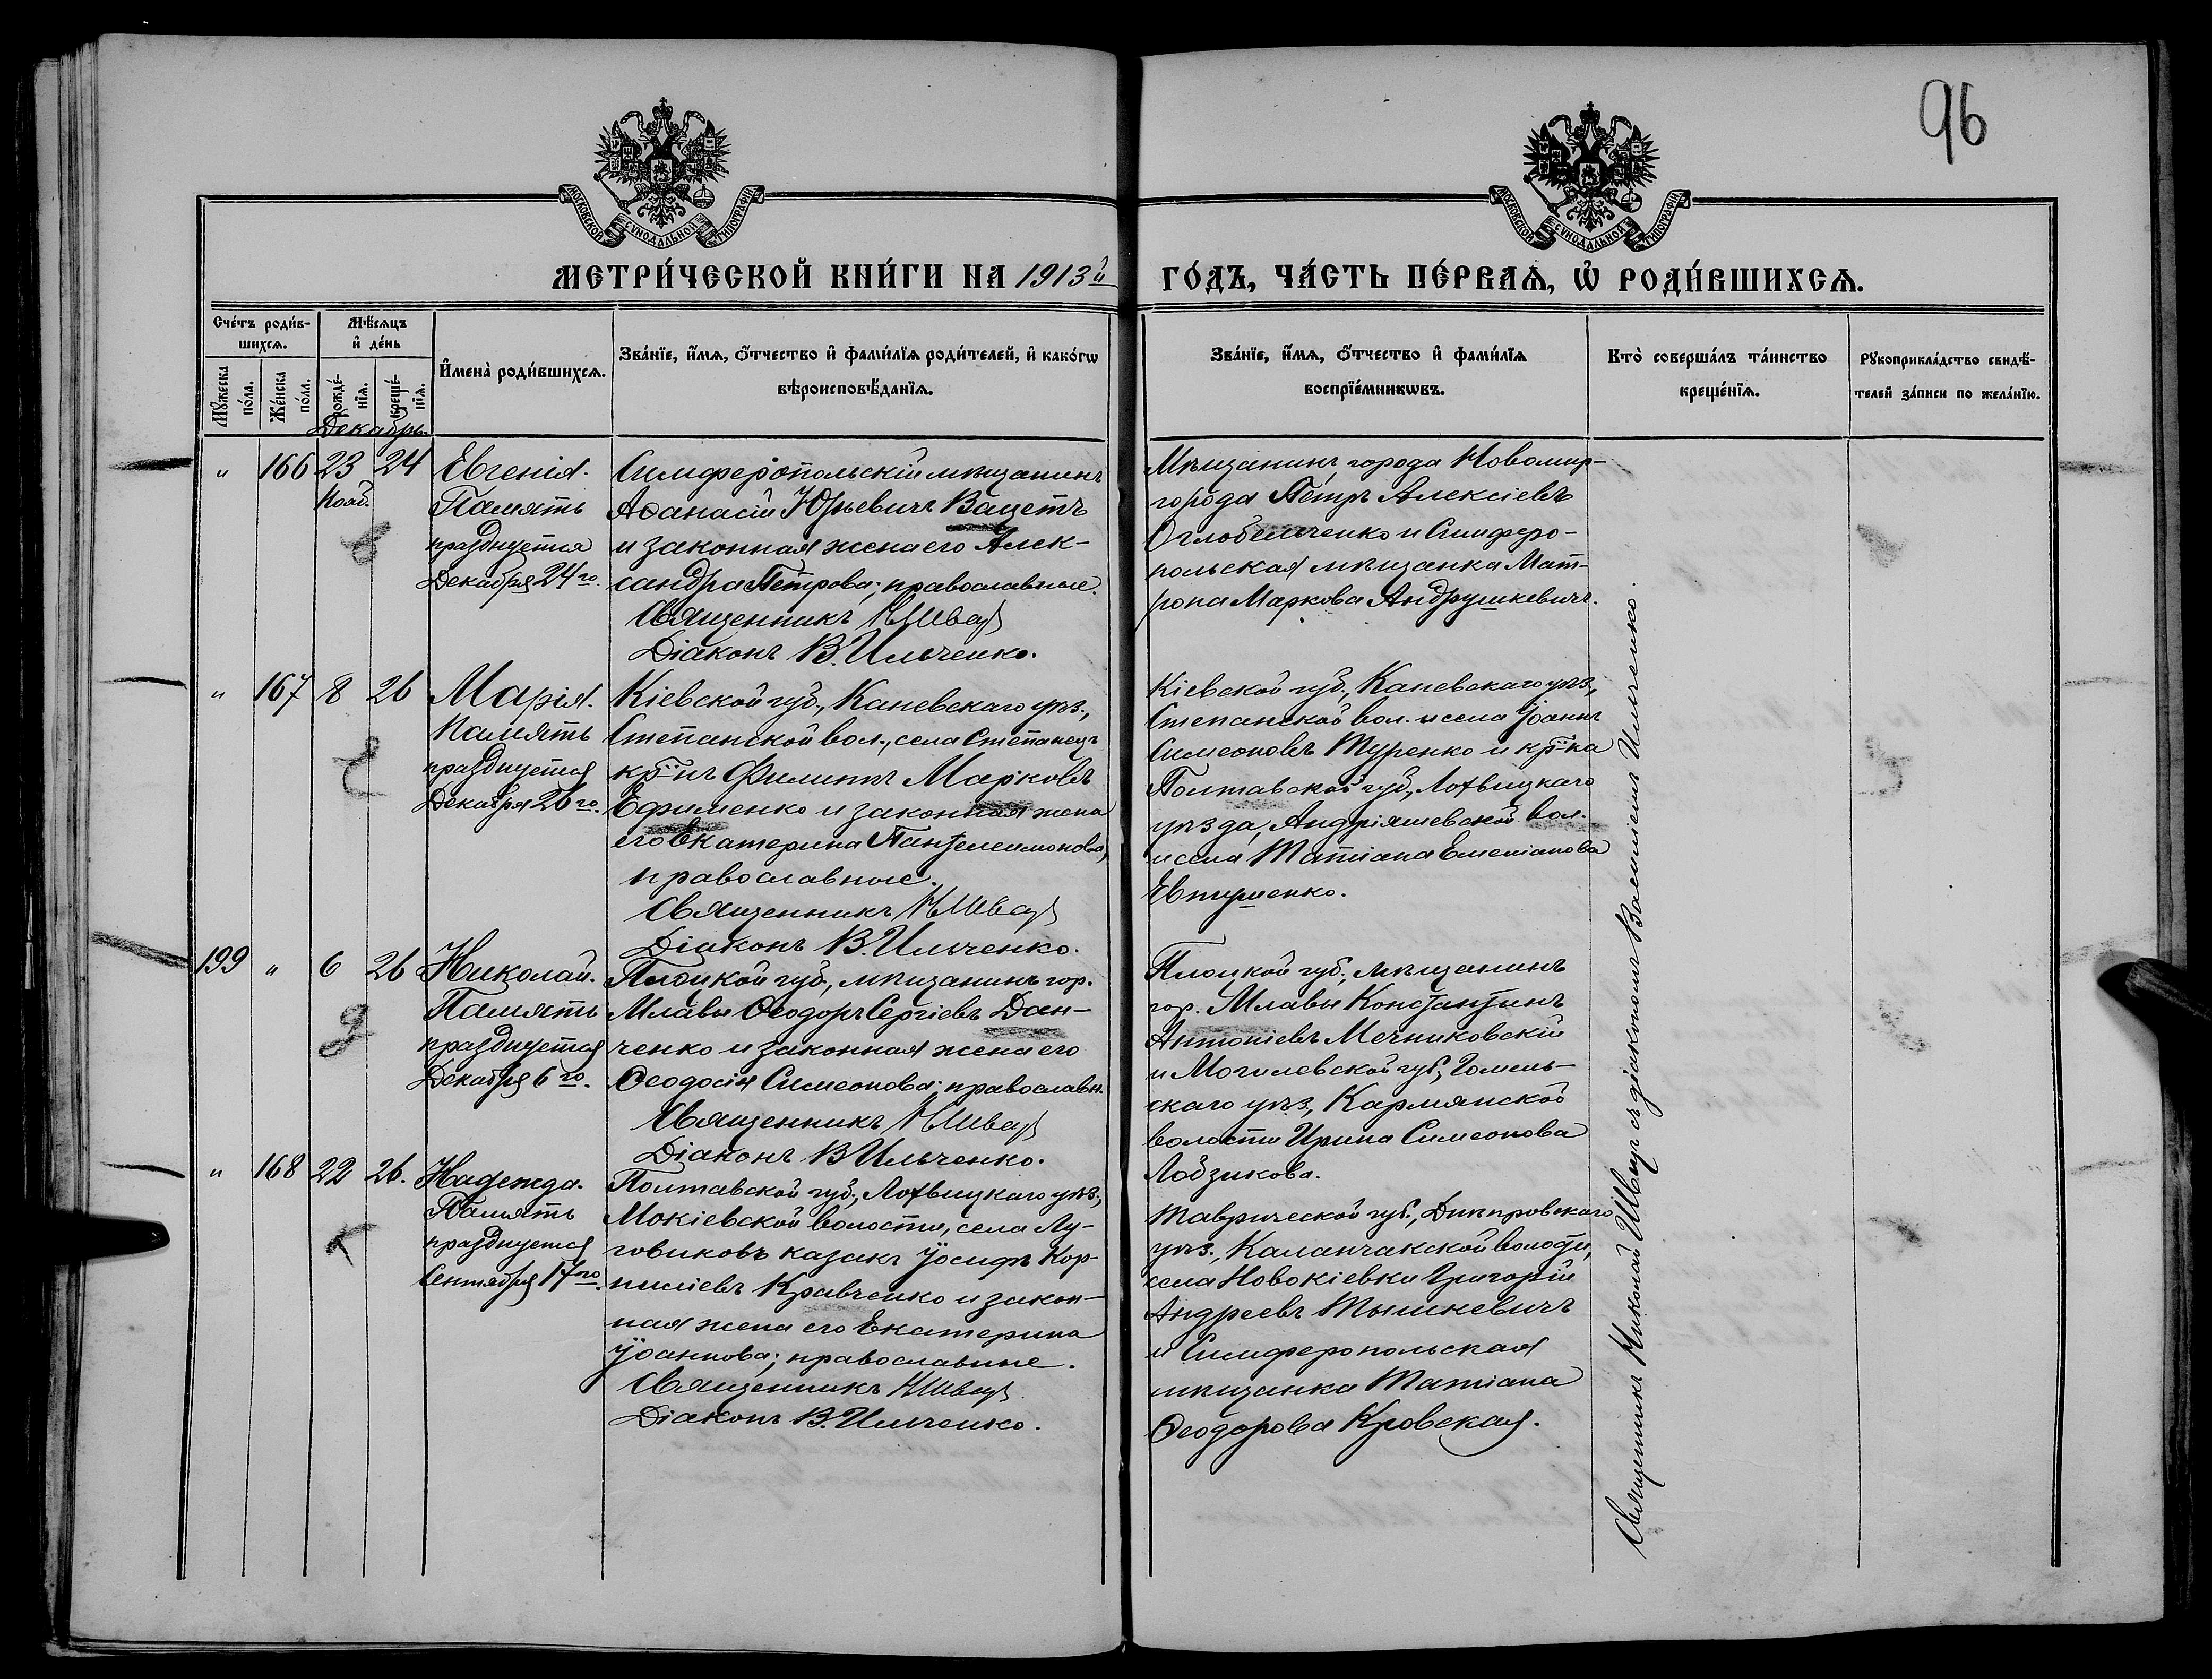 96
МОСКОВСКОЙ СѴНОДАЛЬНОЙ ТИПОГРАФІИ
МОСКОВСКОЙ СѴНОДАЛЬНОЙ ТИПОГРАФІИ
МЕТРИ́ЧЕСКОЙ КНИ́ГИ НА 1913й ГО́ДЪ, ЧА́СТЬ ПЕ́РВАѦ, Ѡ҆ РОДИ́ВШИХСѦ.
Сче́тъ роди́в-
шихсѧ.
Мꙋ́жеска по́ла.
Же́нска по́ла.
Мѣ́сѧцъ
и҆ де́нь
рожде́-
нїѧ.
креще́-
нїѧ.
И҆мена̀ роди́вшихсѧ.
Зва́нїе, и҆́мѧ, ѻ҆́тчество и҆ фами́лїѧ роди́телей, и҆ како́гѡ
вѣроисповѣ́данїѧ.
Зва́нїе, и҆́мѧ, ѻ҆́тчество и҆ фами́лїѧ
воспрїе́мникѡвъ.
Кто̀ соверша́лъ та́инство
креще́нїѧ.
Рꙋкоприкла́дство свидѣ́-
телей за́писи по жела́нїю.
Декабрь.
" 166 23 24
Нояб.
Евгенія.
Память
празднуется
Декабря 24го.
Симферопольскій мѣщанинъ
Аѳанасій Юрьевичъ Вацетъ
и законная жена его Алек-
сандра Петрова; православные.
Священникъ Н Швец
Діаконъ В. Ильченко.
Мѣщанинъ города Новомир-
города Петръ Алексіевъ
Оглобличенко и Симферо-
польская мѣщанка Мат-
рона Маркова Андрушкевичъ.
" 167 8 26
Марія.
Память
празднуется
Декабря 26го.
Кіевской губ., Каневскаго уѣз.,
Степанской вол., села Степанецъ
кр-нъ Филиппъ Марковъ
Ефименко и законная жена
его Екатерина Пантелеимонова,
православные.
Священникъ Н Швец
Діаконъ В. Ильченко.
Кіевской губ., Каневскаго уѣз.,
Степанской вол. и села Іоаннъ
Симеоновъ Туренко и кр-ка
Полтавской губ., Лохвицкаго
уѣзда, Андріяшевской вол.
и села Татіана Емеліанова
Евтушенко.
199 " 6 26
Николай.
Память
празднуется
Декабря 6го.
Плоцкой губ., мѣщанинъ гор.
Млавы Ѳеодоръ Сергіевъ Дан-
ченко и законная жена его
Ѳеодосія Симеонова; православн.
Священникъ Н Швец
Діаконъ В Ильченко.
Плоцкой губ., мѣщанинъ
гор. Млавы Константинъ
Антоніевъ Мечниковскій
и Могилевской губ., Гомель-
скаго уѣз., Кармянской
волости Ирина Симеонова
Лобзикова.
" 168 22 26.
Надежда.
Память
празднуется
Сентября 17го.
Полтавской губ., Лохвицкаго уѣз.,
Мокіевской волости, села Лу-
говиковъ казакъ Іосифъ Кор-
ниліевъ Кравченко и закон-
ная жена его Екатерина
Іоаннова; православные.
Священникъ Н Швец
Діаконъ В. Ильченко.
Таврической губ., Днѣпровскаго
уѣз., Каланчакской волости,
села Новокіевки Григорій
Андреевъ Тышкевичъ
и Симферопольская
мѣщанка Татіана
Ѳеодорова Кровская.
Священникъ Николай Швецъ съ діакономъ Василіемъ Ильченко.